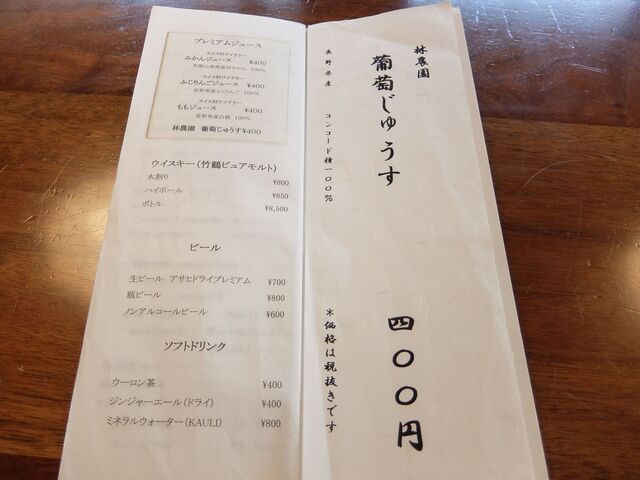 プレミアムジュース
スイス村ワイナリー
みかんジュース ¥400
和歌山県産温州みかん 100%
スイス村ワイナリー
ふじりんごジュース ¥400
長野県産ふじりんご 100%
スイス村ワイナリー
ももジュース ¥400
長野県産白桃 100%
林農園 葡萄じゅうす¥400
ウイスキー(竹鶴ピュアモルト)
水割り ¥800
ハイボール ¥850
ボトル ¥8,500
ビール
生ビール アサヒドライプレミアム ¥700
瓶ビール ¥800
ノンアルコールビール ¥600
ソフトドリンク
ウーロン茶 ¥400
ジンジャーエール(ドライ) ¥400
ミネラルウォーター(KAULI) ¥800
林農園
葡萄じゅうす 四〇〇円
長野県産 コンコード種一〇〇%
*価格は税抜きです